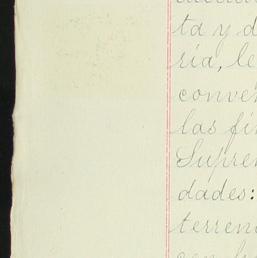 ta y d
ria, le
conve
las fi
Supre
dades:
terren